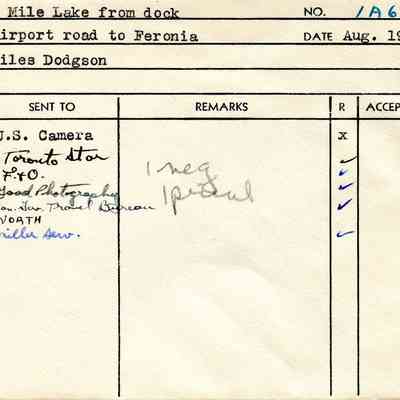 Mile Lake from dock NO. 1A6
irport road to Feronia DATE Aug. 19
iles Dodgson
SENT TO REMARKS R ACCEP
U.S. Camera x
Toronto Star ✓
F. & O. 1 neg ✓
Good Photography 1 ✓
Travel Bureau ✓
NORTH
Miller Serv. ✓